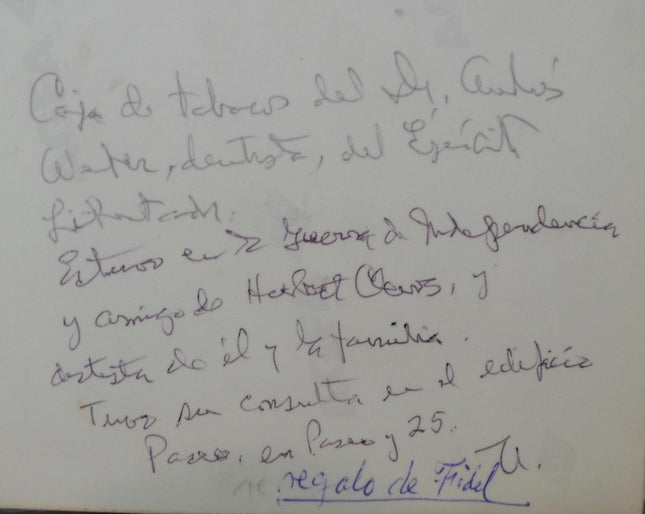 Caja de tabacos del Dr. Andrés
Weber, dentista, del Ejército
Libertador.
Estuvo en la Guerra de Independencia
y amigo de Herbert Claws, y
dentista de él y la familia.
Tuvo su consulta en el edificio
Paseo, en Paseo y 25.
regalo de Fidel